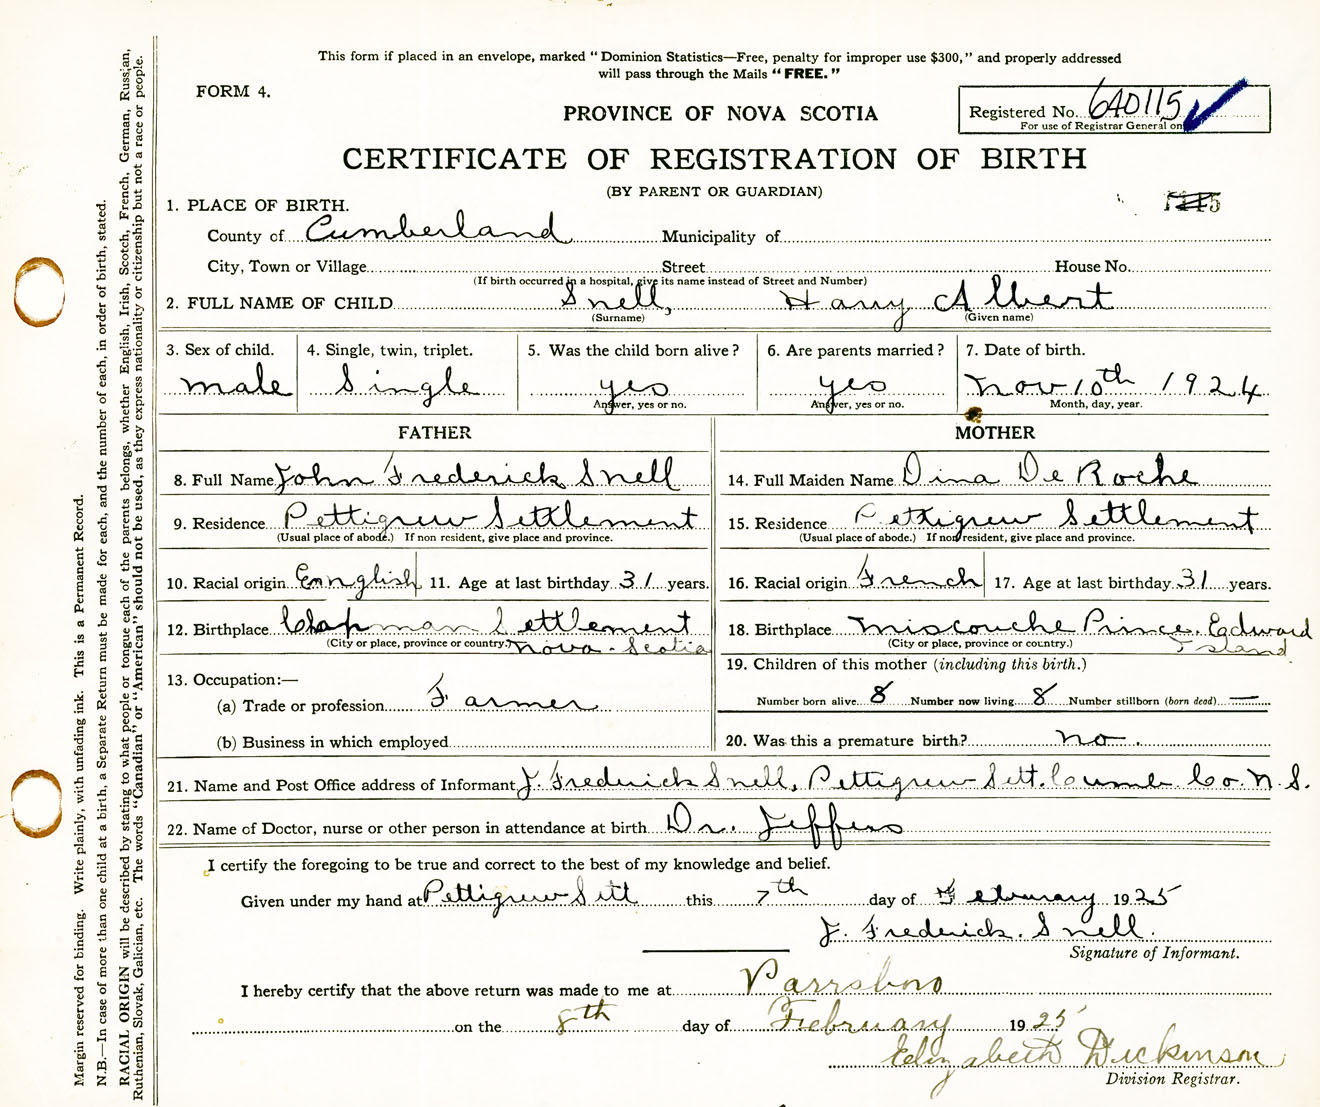 This form if placed in an envelope, marked “Dominion Statistics—Free, penalty for improper use $300,” and properly addressed
will pass through the Mails “FREE.”
FORM 4.
PROVINCE OF NOVA SCOTIA
Registered No. 640115
For use of Registrar General on
CERTIFICATE OF REGISTRATION OF BIRTH
(BY PARENT OR GUARDIAN)
1. PLACE OF BIRTH.
County of Cumberland Municipality of
City, Town or Village Street House No.
(If birth occurred in a hospital, give its name instead of Street and Number)
2. FULL NAME OF CHILD Snell, Harry Albert
(Surname) (Given name)
3. Sex of child. 4. Single, twin, triplet. 5. Was the child born alive? 6. Are parents married? 7. Date of birth.
male Single yes yes Nov 10th 1924
Answer, yes or no. Answer, yes or no. Month, day, year.
FATHER MOTHER
8. Full Name John Frederick Snell 14. Full Maiden Name Dina De Roche
9. Residence Pettigrew Settlement 15. Residence Pettigrew Settlement
(Usual place of abode.) If non resident, give place and province. (Usual place of abode.) If non resident, give place and province.
10. Racial origin English 11. Age at last birthday 31 years. 16. Racial origin French 17. Age at last birthday 31 years.
12. Birthplace Chapman Settlement 18. Birthplace Miscouche Prince Edward
(City or place, province or country.) Nova-Scotia (City or place, province or country.) Island
19. Children of this mother (including this birth.)
13. Occupation:—
(a) Trade or profession Farmer Number born alive 8 Number now living 8 Number stillborn (born dead) —
(b) Business in which employed 20. Was this a premature birth? no.
21. Name and Post Office address of Informant J. Frederick Snell, Pettigrew Sett. Cumb Co. N. S.
22. Name of Doctor, nurse or other person in attendance at birth Dr. Jeffers
I certify the foregoing to be true and correct to the best of my knowledge and belief.
Given under my hand at Pettigrew Sett this 7th day of February 1925
J. Frederick. Snell.
Signature of Informant.
I hereby certify that the above return was made to me at Parrsboro
on the 8th day of February 1925
Elizabeth Dickinson
Division Registrar.
Margin reserved for binding. Write plainly, with unfading ink. This is a Permanent Record.
N.B.—In case of more than one child at a birth, a Separate Return must be made for each, and the number of each, in order of birth, stated.
RACIAL ORIGIN will be described by stating to what people or tongue each of the parents belongs, whether English, Irish, Scotch, French, German, Russian,
Ruthenian, Slovak, Galician, etc. The words “Canadian” or “American” should not be used, as they express nationality or citizenship but not a race or people.